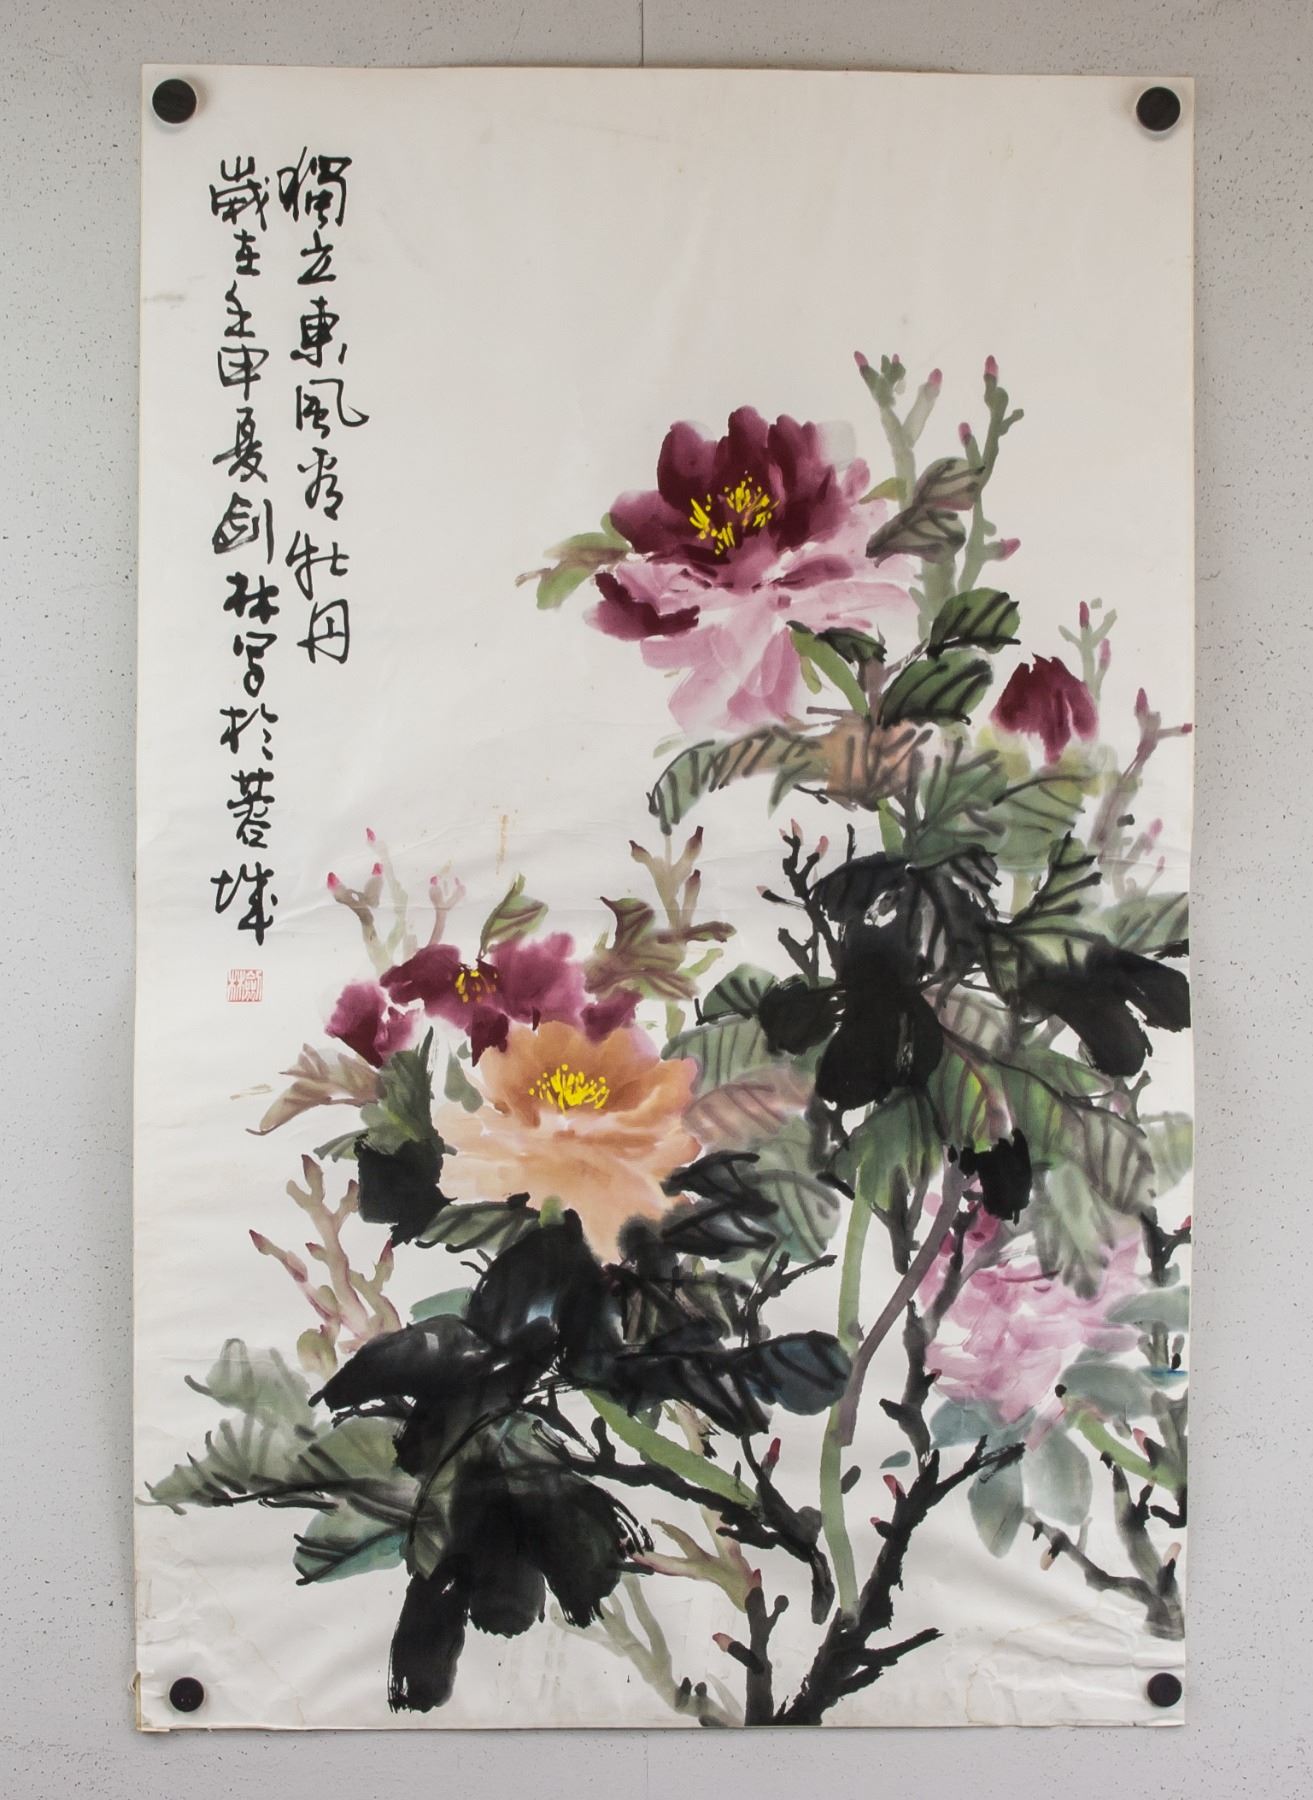 獨立東風看牡丹
歲在壬申夏劍林寫於蓉城
劍林